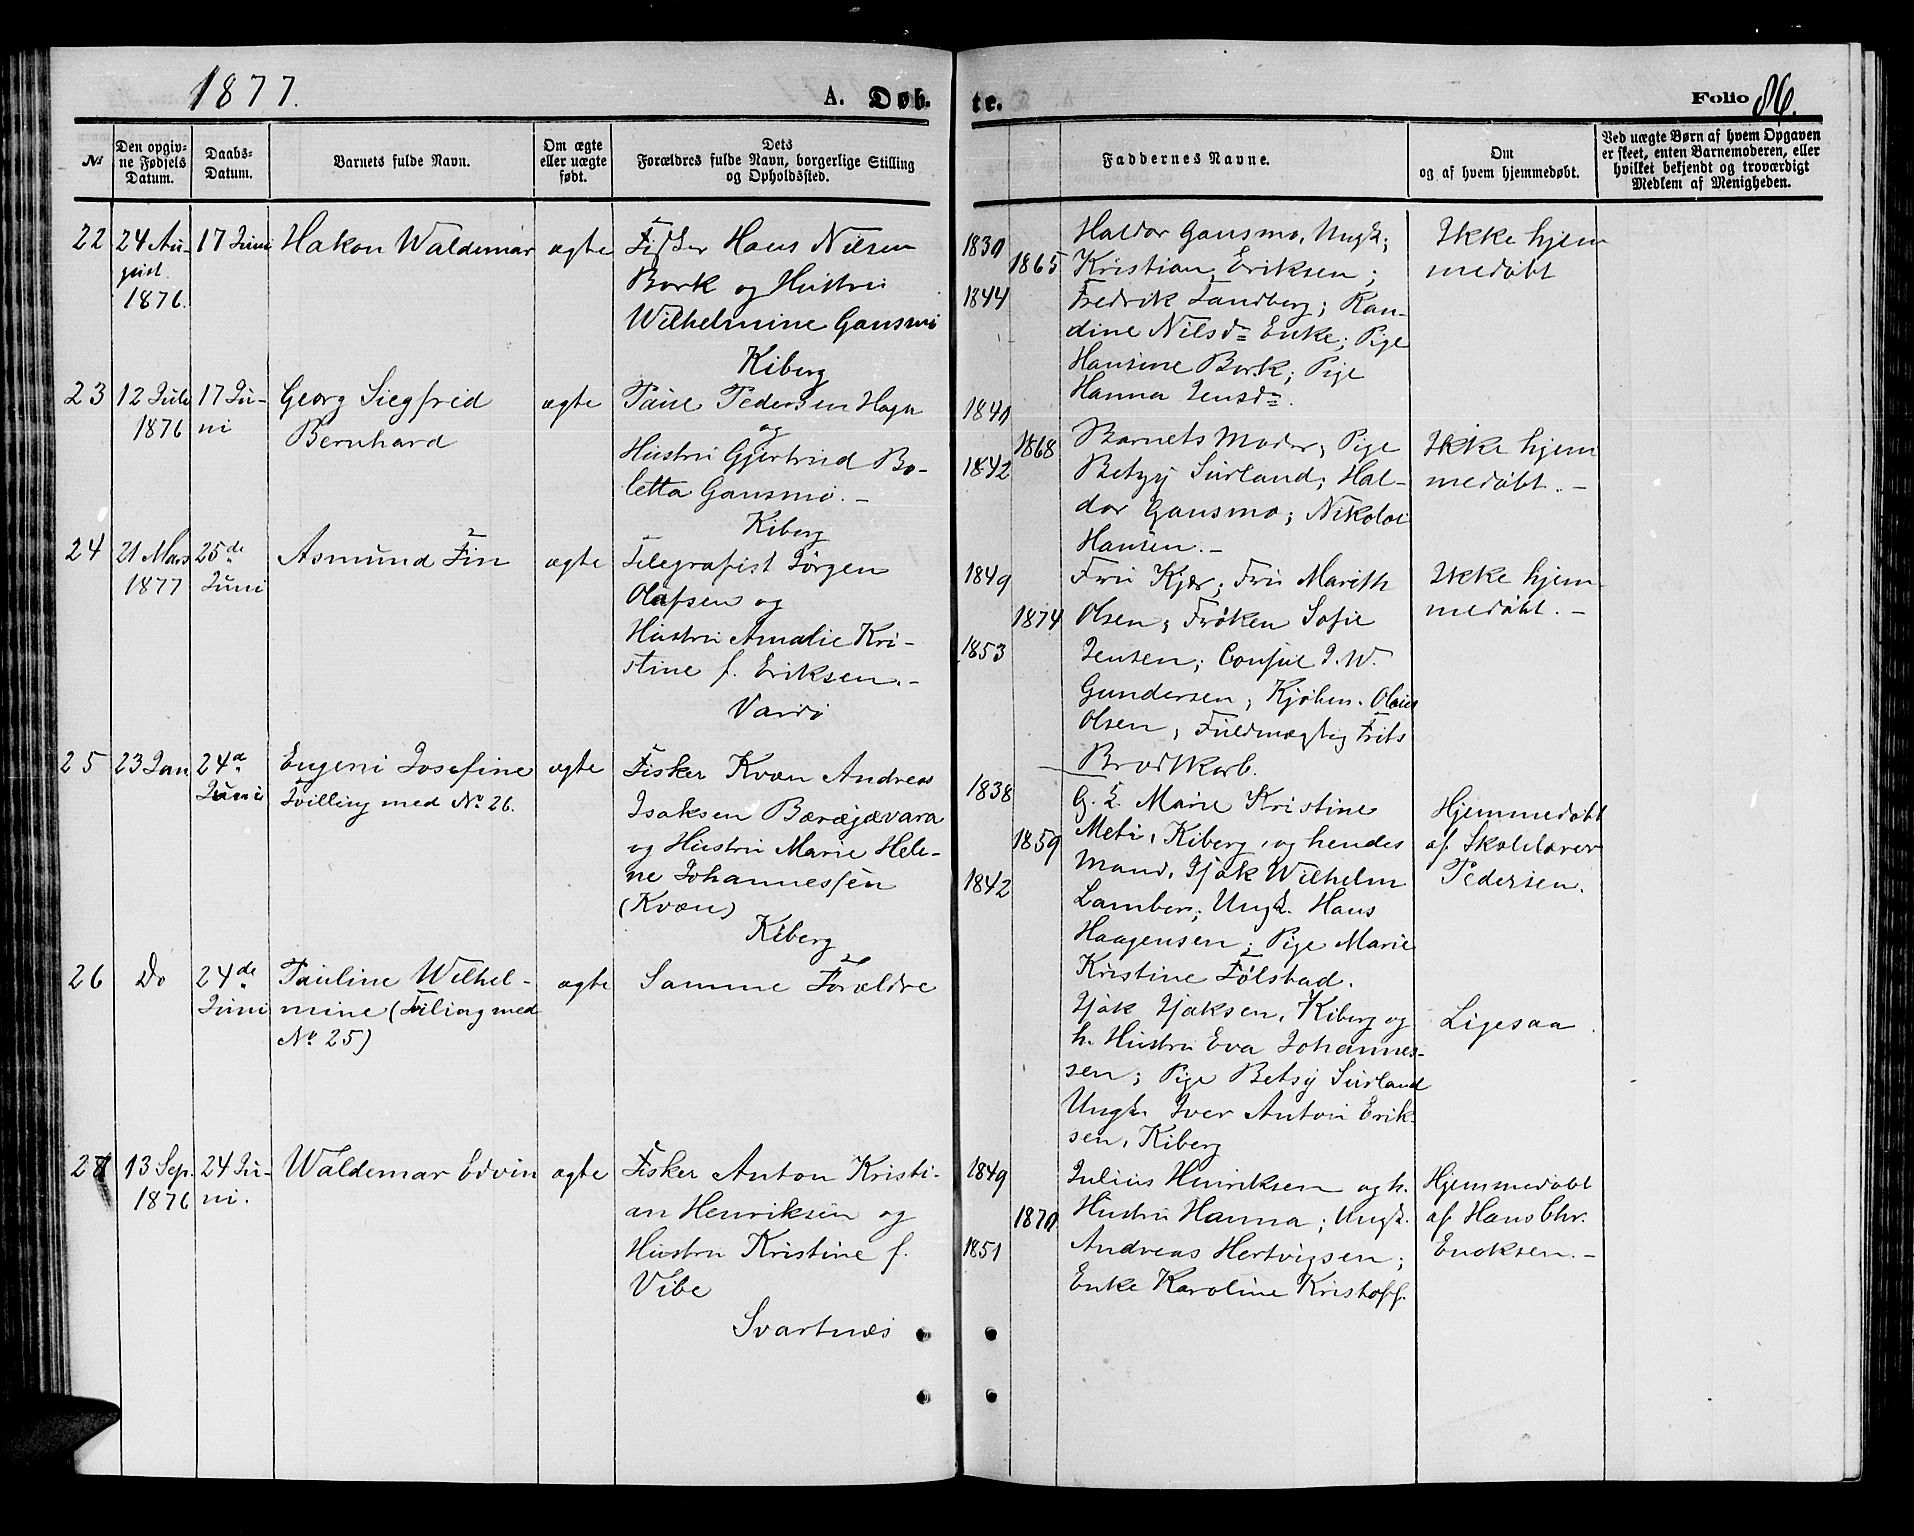 1877.
A. Døb.
te.
Folio 86.
No
Den opgiv-
ne Fødsels
Datum.
Daabs-
Datum.
Barnets fulde Navn.
Om ægte
eller uægte
født.
Dets
Forældres fulde Navn, borgerlige Stilling
og Opholdssted.
Faddernes Navne.
Om
og af hvem hjemmedøbt.
Ved uægte Børn af hvem Opgaven
er skeet, enten Barnemoderen, eller
hvilket bekjendt og troværdigt
Medlem af Menigheden.
22
24 Au-
gust
1876.
17 Juni
Hakon Waldemar
ægte
Fisker Hans Nilsen
Bork og Hustru
Wilhelmine Gansmo
Kiberg
1830
1865
1844
Haldor Gansmo, Ungk;
Kristian Eriksen;
Fredrik Landberg; Ran-
dine Nilsd= Enke; Pige
Hansine Bork; Pige
Hanna Jensd=.
Ikke hjem
medøbt
23
12 Juli
1876
17 Ju-
ni
Georg Siegfred
Bernhard
ægte
Paul Pedersen
og
Hustru Gjertrud Bo-
letta Gansmo. -
Kiberg
1840
1868
1842
Barnets Moder; Pige
Betzy Surland; Hal-
dor Gansmo; Nikolai
Hansen. -
Ikke hjem
medøbt. -
24
21 Mars
1877
25de
Juni
Asmund Fin
ægte
Telegrafist Jørgen
Olafsen og
Hustru Amalie Kri-
stine f. Eriksen. -
Vardø
1849
1874
1853
Fru Kjær; Fru Marith
Olsen; Frøken Sofie
Jensen; Consul J. W.
Gundersen; Kjøbm. Olaus
Olsen; Fuldmægtig Frits
Brodtkorb.
Ikke hjem-
medøbt. -
25
23 Jan
24de
Juni
Eugeni Josefine
Tvilling med No. 26.
ægte
Fisker Kvæn Andreas
Isaksen Bæræjævara
og Hustru Marie Hele-
ne Johannessen
(Kvæn)
Kiberg
1838
1859
1842
G. K. Marie Kristine
Meti, Kiberg, og hendes
Mand, Isak Wilhelm
Lamben; Ungk. Hans
Haagensen; Pige Marie
Kristine Følstad.
Hjemmedøbt
af Skolelærer
Pedersen.
26
Do
24de
Juni
Pauline Wilhel-
mine (Tviling med
No. 25)
ægte
Samme Forældre
Isak Isaksen, Kiberg og
h. Hustru Eva Johannes-
sen; Pige Betsy Surland
Ungk. Iver Anton Erik-
sen, Kiberg
Ligesaa
27
13 Sep.
1876
24 Ju-
ni.
Waldemar Edvin
ægte
Fisker Anton Kristi-
an Henriksen og
Hustru Kristine f.
Vibe
Svartnæs
1849
1870
1851
Julius Hinriksen og h.
Hustru Hanna; Ungk.
Andreas Hertvigsen;
Enke Karoline Kristoff.
Hjemmedøbt
af Hans Chr.
Enoksen. -